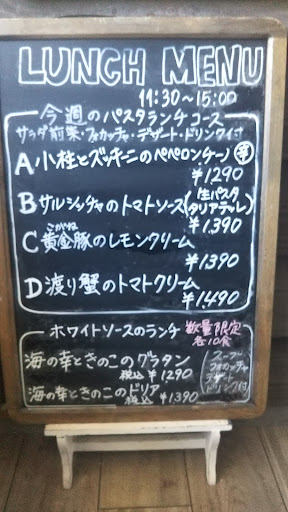 LUNCH MENU
11:30~15:00
今週のパスタランチコース
サラダ前菜・フォカッチャ・デザート・ドリンク付
A 小柱とズッキーニのペペロンチーノ 辛
¥1290
B サルシッチャのトマトソース(生パスタ タリアテッレ)
¥1.390
こがね
C 黄金豚のレモンクリーム
¥1390
D 渡り蟹のトマトクリーム
¥1.490
ホワイトソースのランチ 数量限定 各10食
海の幸ときのこのグラタン
税込 ¥1290
海の幸ときのこのドリア
税込 ¥1.390
(スープ
フォカッチャ
デザート
ドリンク付)